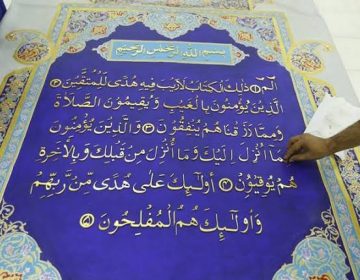 بسم الله الرحمن الرحيم
الم ۝ ذلك الكتاب لا ريب فيه هدى للمتقين ۝
الذين يؤمنون بالغيب ويقيمون الصلاة
ومما رزقناهم ينفقون ۝ والذين يؤمنون
بما أنزل إليك وما أنزل من قبلك وبالآخرة
هم يوقنون ۝ أولئك على هدى من ربهم
وأولئك هم المفلحون ۝